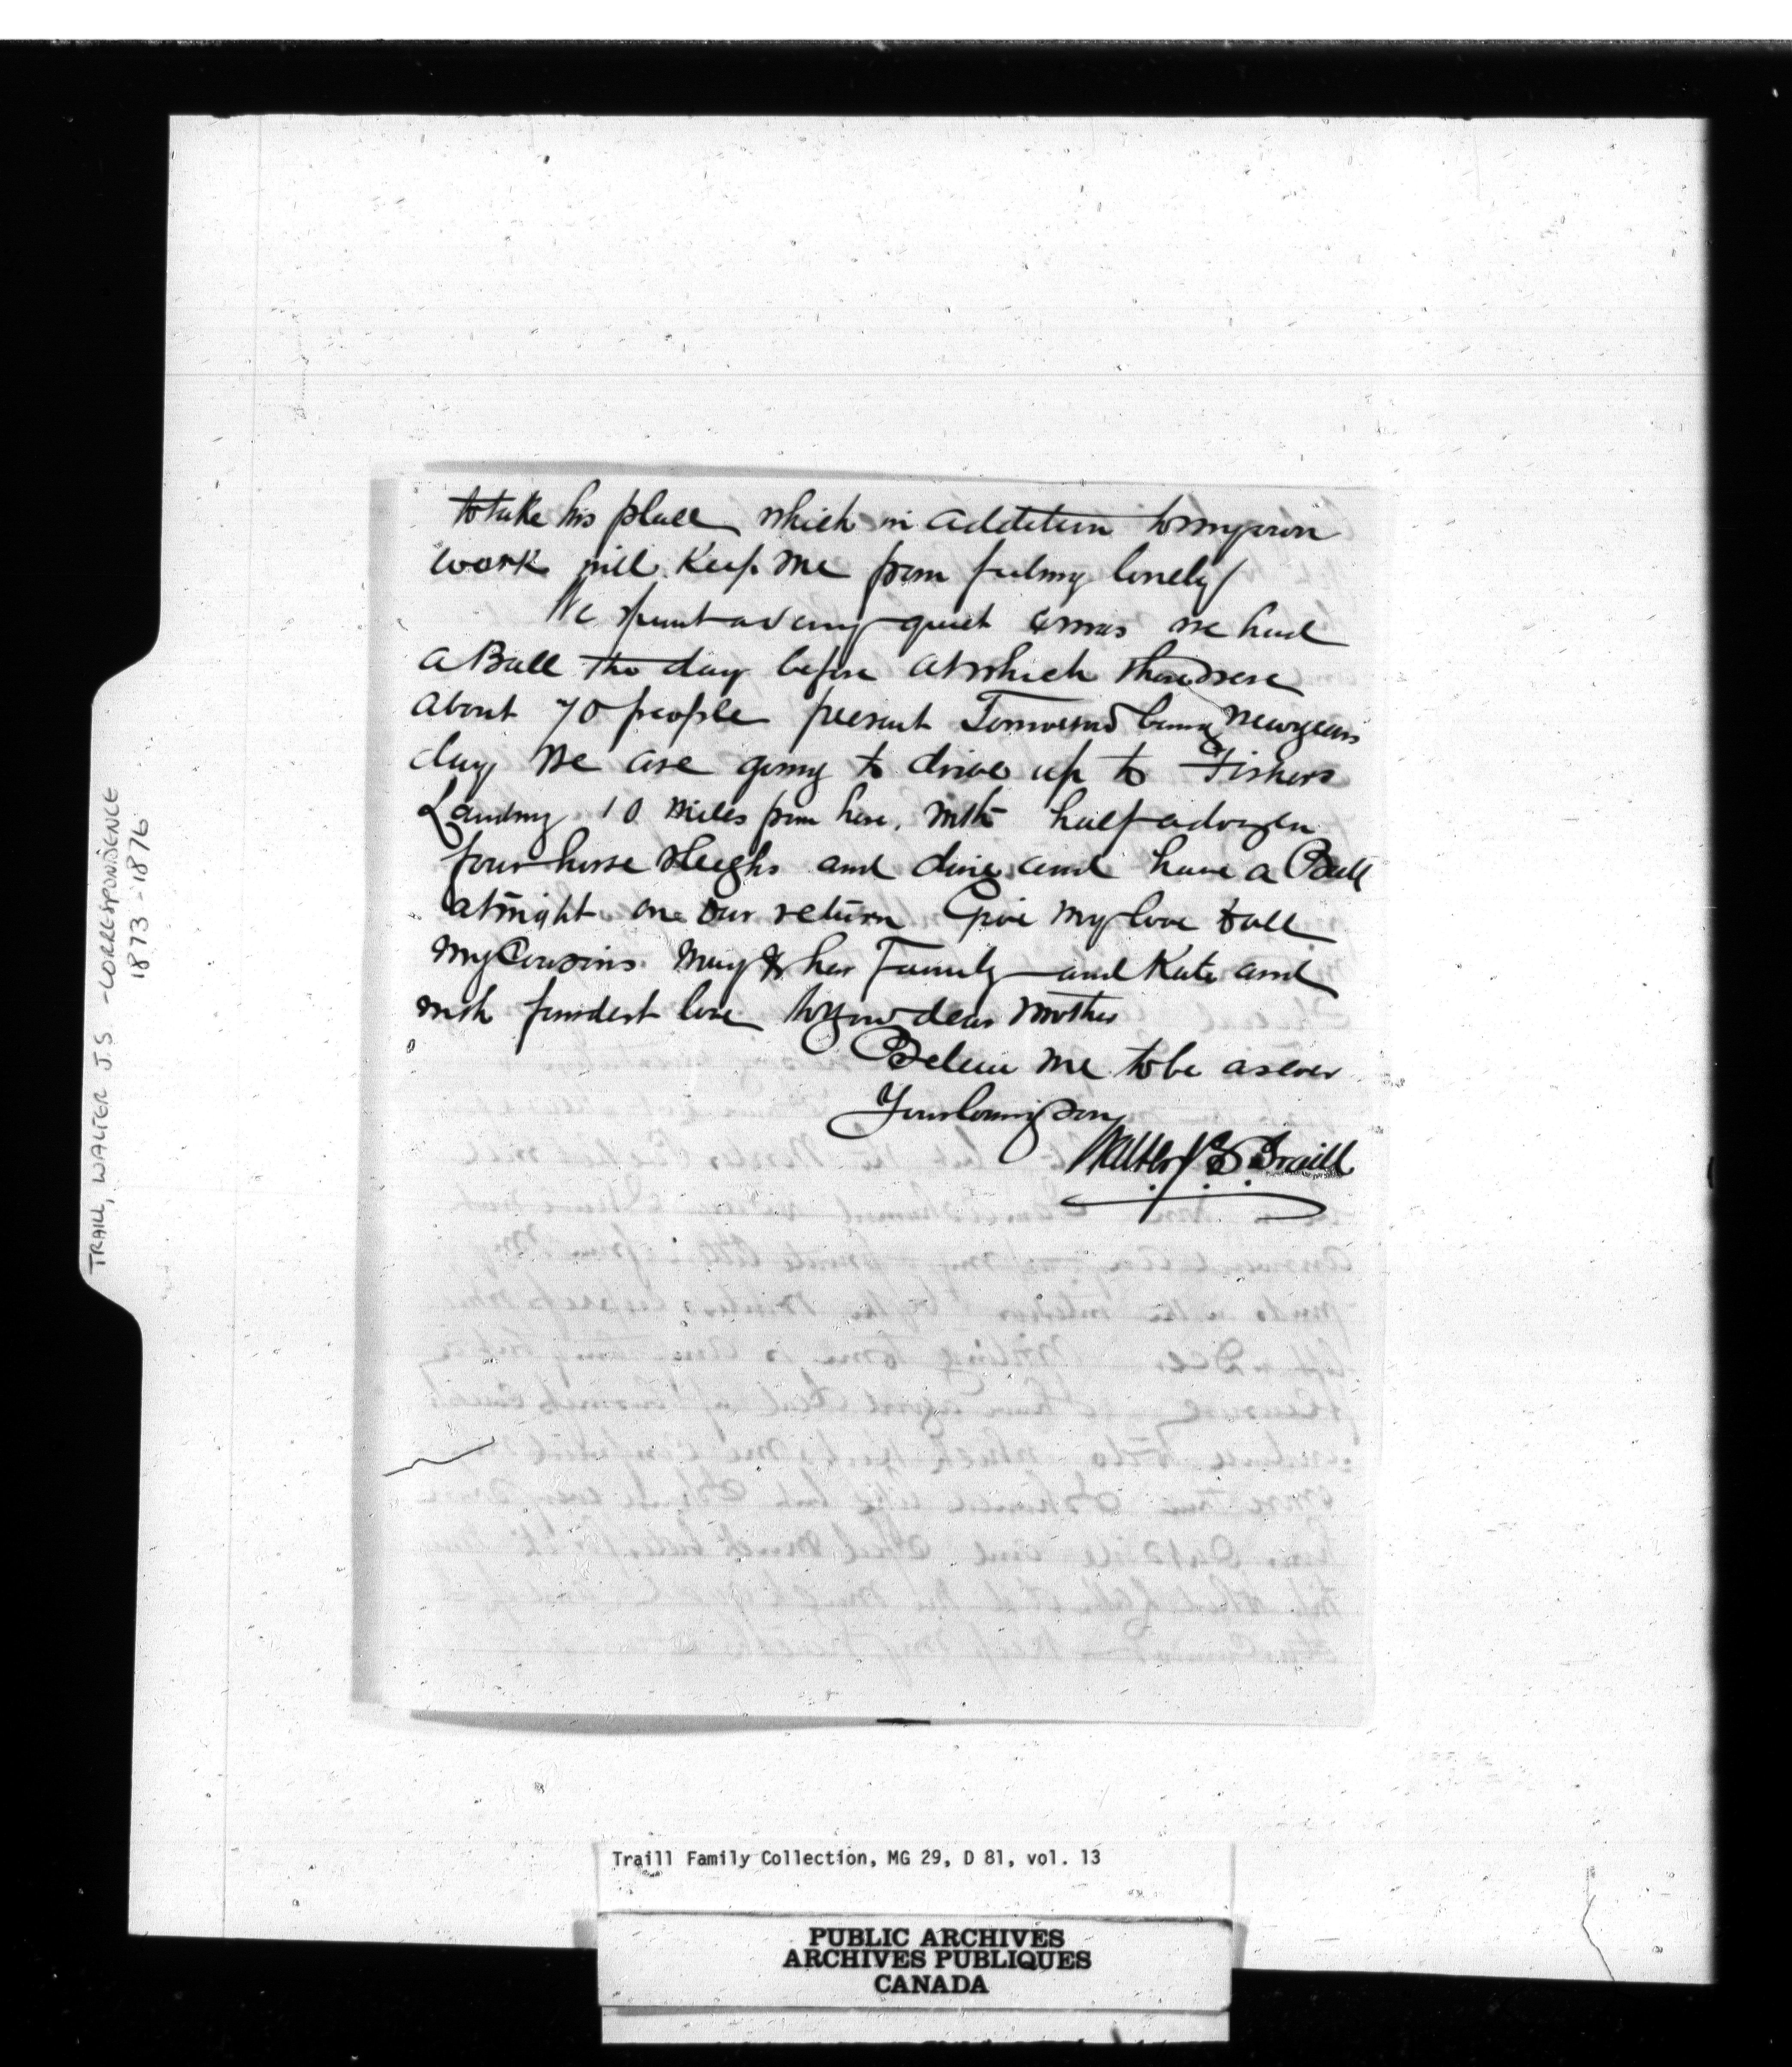 to take his place which in addition to my own
work will keep me from feeling lonely
We spent a very quiet Xmas we had
a Ball the day before at which there were
about 70 people present Tomorrow being New years
day we are going to drive up to Fishers
Landing 10 miles from here, with half a dozen
four horse sleighs and dine and have a Ball
at night on our return Give my love to all
my Cousins Mary & her Family and Kate and
with fondest love to your dear Mother
Believe me to be as ever
Your loving Son
Walter J. S. Traill
TRAILL, WALTER JS - CORRESPONDENCE
1873-1876
Traill Family Collection, MG 29, D 81, vol. 13
PUBLIC ARCHIVES
ARCHIVES PUBLIQUES
CANADA